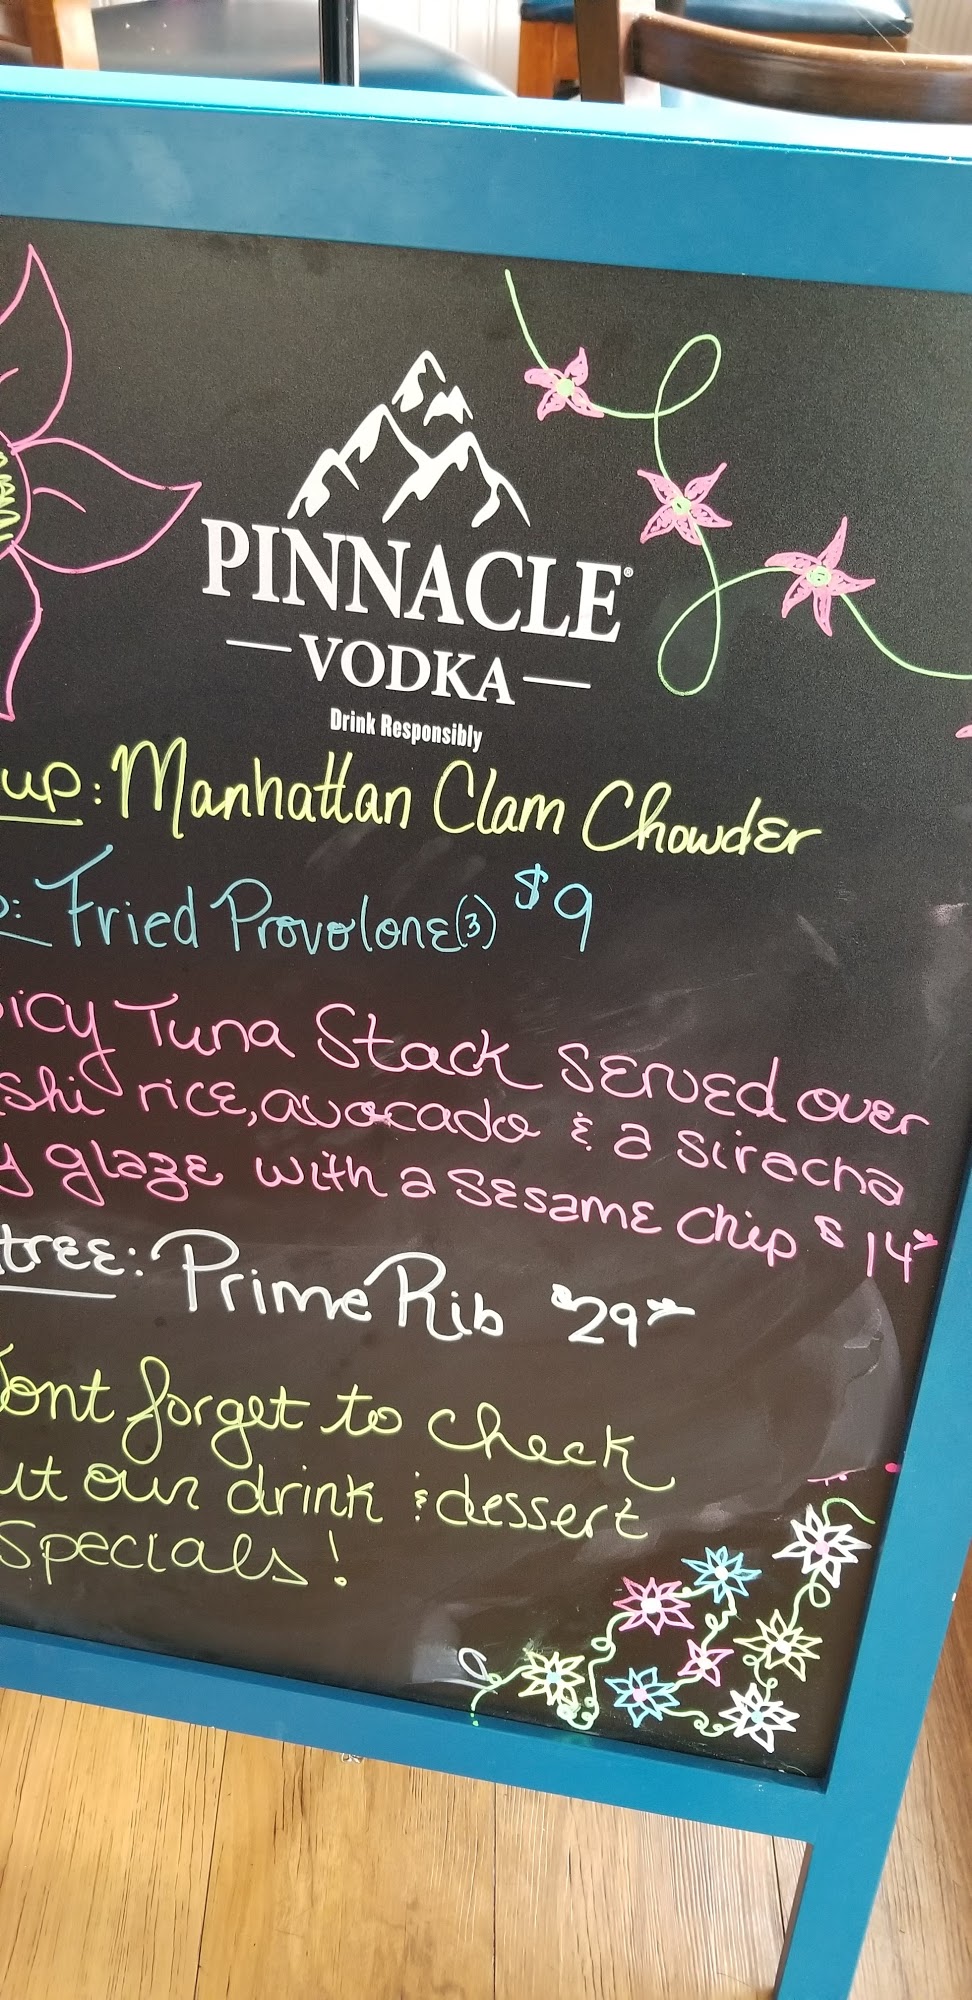 PINNACLE®
VODKA
Drink Responsibly
up: Manhattan Clam Chowder
: Fried Provolone(3) $9
icy Tuna Stack served over
shi rice, avocado & a siracha
y glaze with a sesame chip $14
tree: Prime Rib $29
Dont forget to check
ut our drink & dessert
Specials!